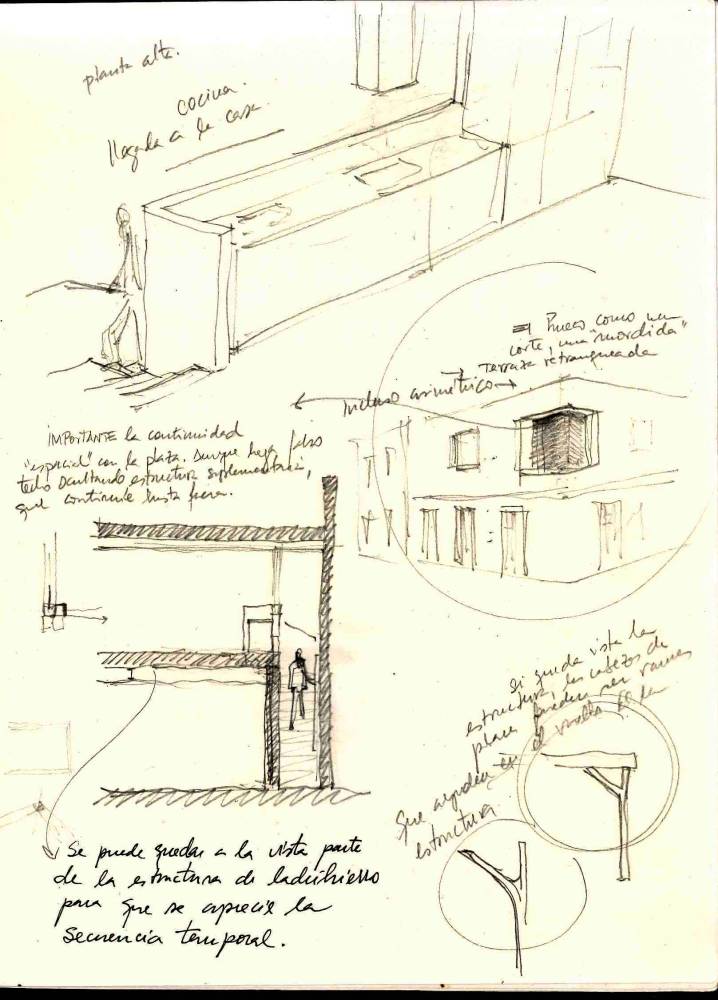 planta alta.
cocina.
llegada a la casa.
Hueco como un
corte, una "mordida"
→ terraza retranqueada
incluso asimétrico →
IMPORTANTE la continuidad
"espacial" con la plaza. Aunque haya falso
techo ocultando estructura suplementaria,
que continúe hasta fuera.
Si queda vista la
estructura, las cabezas de
placa pueden ser ramas
en el
Que ayuden
estructura
Se puede quedar a la vista parte
de la estructura de ladrihierro
para que se aprecie la
secuencia temporal.